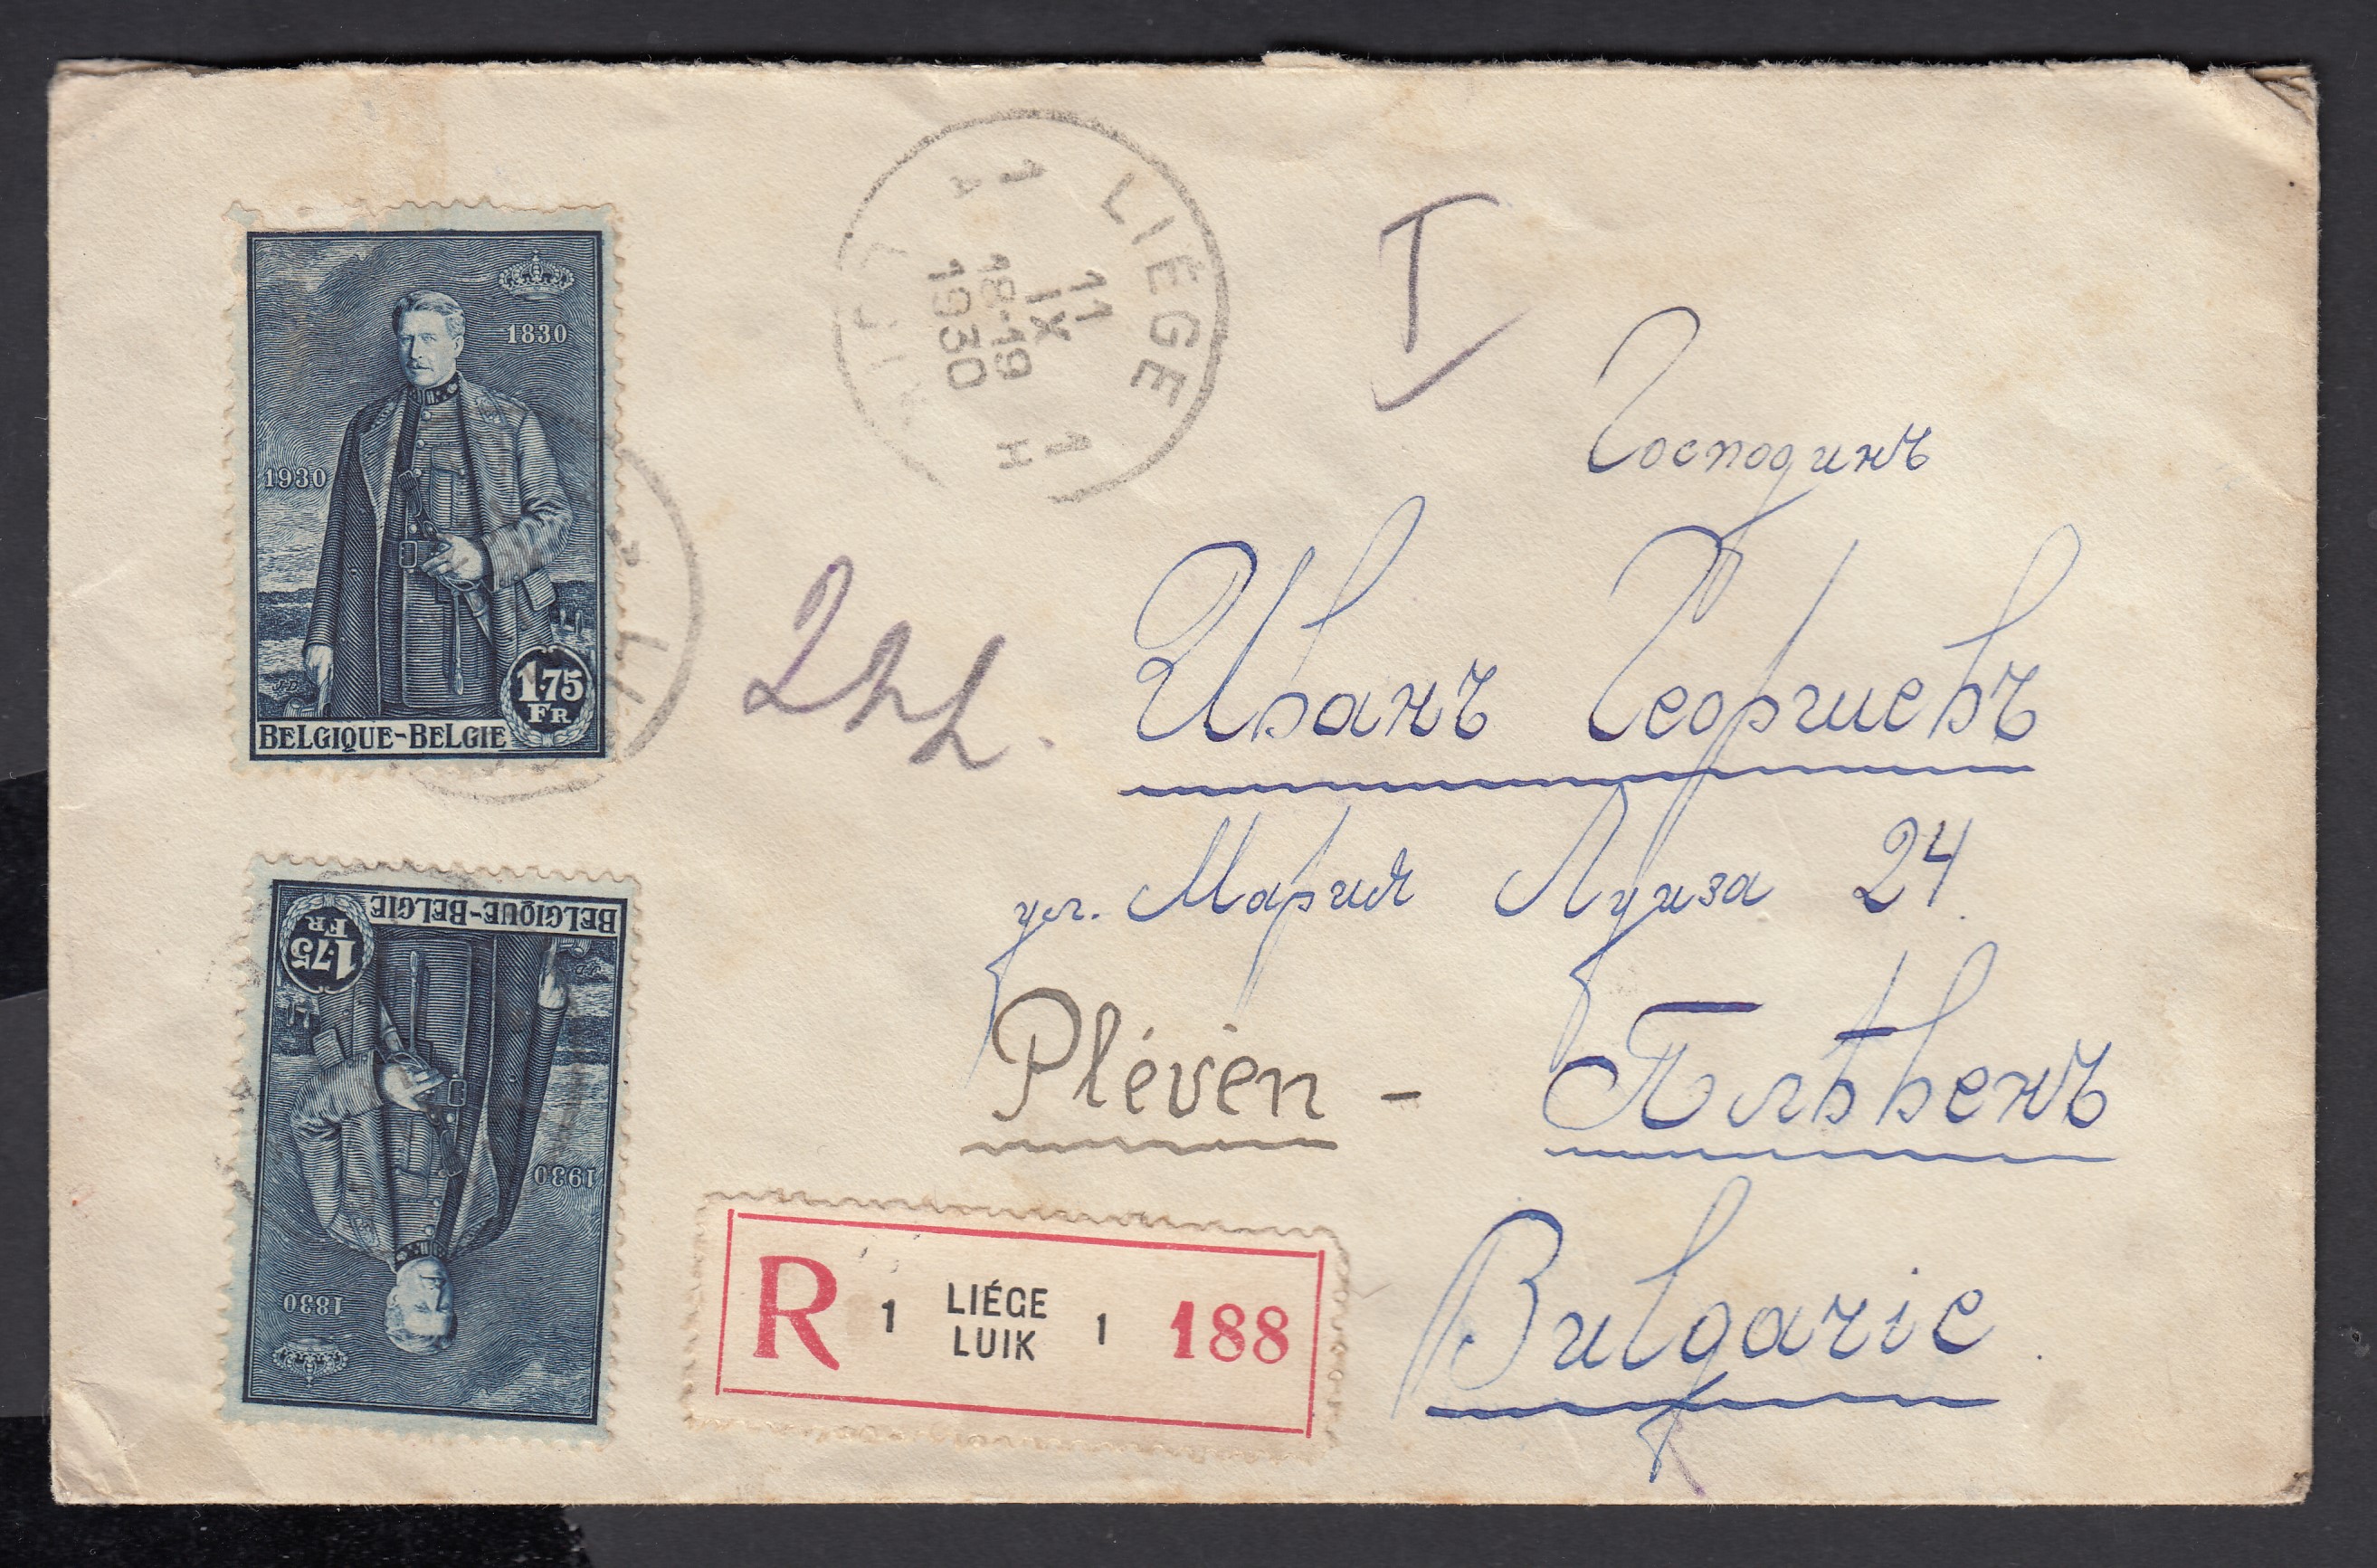 1830
1930
1.75
FR
BELGIQUE-BELGIE
LIÉGE
1 1
A H
11
IX
18-19
1930
LUIK
T
Господинъ
Иванъ Георгиевъ
ул. Мария Луиза 24.
Pléven - Плѣвенъ
Bulgarie.
BELGIQUE-BELGIE
1.75
FR
1930
1830
R 1 LIÉGE 1 188
LUIK